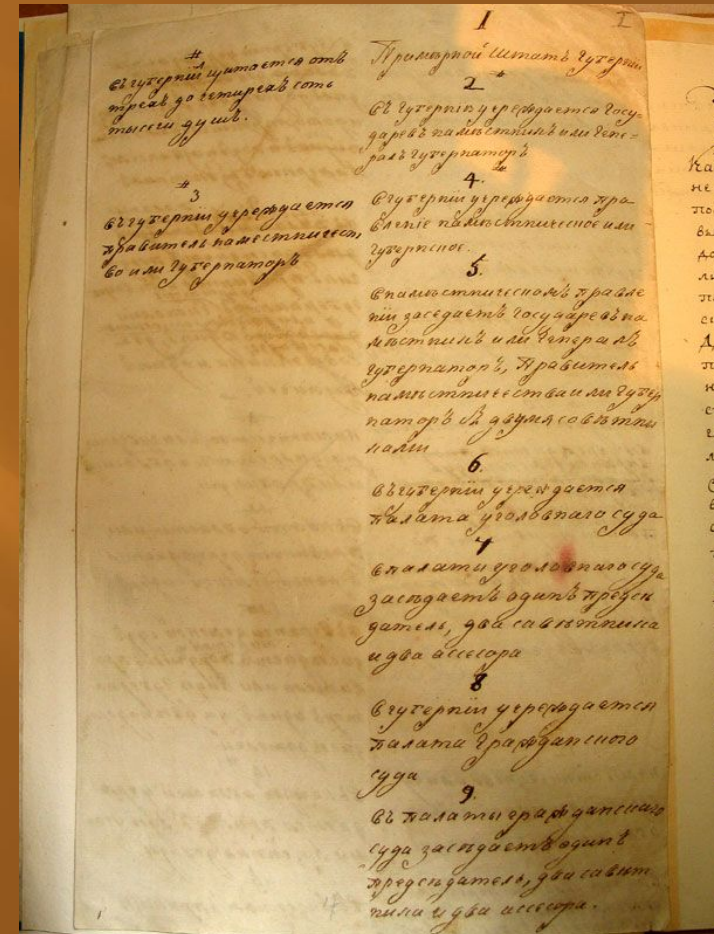 1 I
Примѣрной Штатъ Губерніи
#
въ губерніи щитается отъ
трехъ до четирехъ сотъ
тысечи душъ.
2
Въ губерніи учреждается Госу-
даревъ намѣстникъ или Гене-
ралъ Губернаторъ
#
3
въ губерніи учреждается
правитель наместничест,
во или губернаторъ
4.
В губерніи учреждаются пра
вленіе намѣстническое или
губернское.
5.
В намѣстническомъ правле
ніи заседаетъ Государевъ на
мѣстникъ или Генералъ
губернаторъ, правитель
намѣстничества или губер
наторъ съ двумя совѣтни
ками
6.
Въ губерніи учреждается
палата уголовнаго суда
7
В палаты уголовнаго суда
заседаетъ одинъ предсе
датель, два савѣтника
и два ассесора
8
В губерніи учреждается
палата гражданского
суда
9.
въ палаты гражданскаго
суда заседаетъ одинъ
председатель, два савѣт
ника и два ассесора.